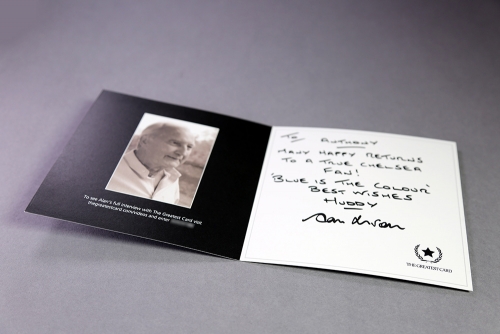 To see Alan's full interview with The Greatest Card visit
thegreatestcard.com/videos and enter
To ANTHONY
MANY HAPPY RETURNS
TO A TRUE CHELSEA
FAN!
'BLUE IS THE COLOUR'
BEST WISHES
HUDDY
THE GREATEST CARD